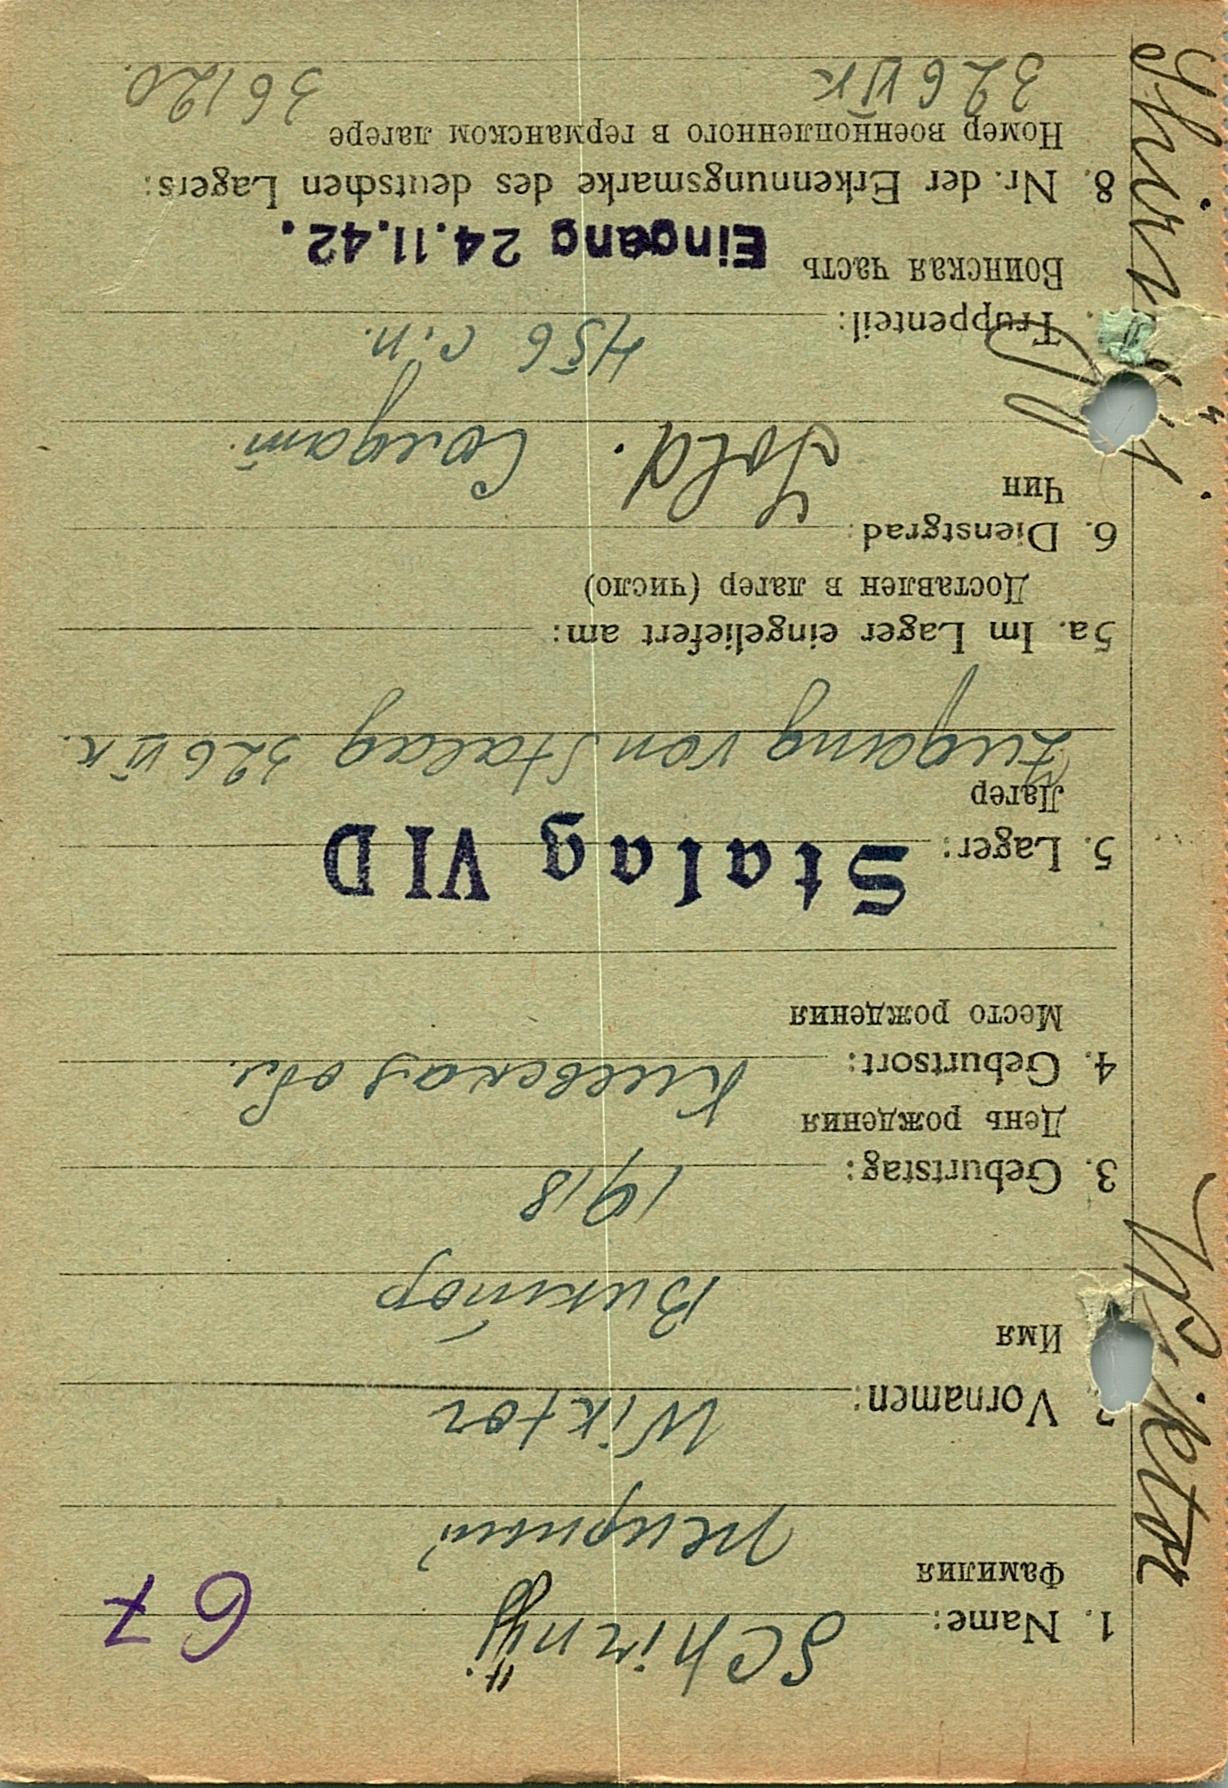 67
1. Name: Schirnÿj
Фамилия
Жирный
2. Vornamen: Wiktor
Имя
Виктор
3. Geburtstag: 1918
День рождения
4. Geburtsort: Киевская обл.
Место рождения
5. Lager: Stalag VID
Лагерь
Zugang von Stalag 326 VI K.
5a. Im Lager eingeliefert am:
Доставлен в лагерь (число)
6. Dienstgrad:
Чин
Sold. Солдат.
Truppenteil: 456 с.п.
Воинская часть
Eingang 24.11.42.
8. Nr. der Erkennungsmarke des deutschen Lagers:
Номер военнопленного в германском лагере
326 VI K 36120.
Wiktor